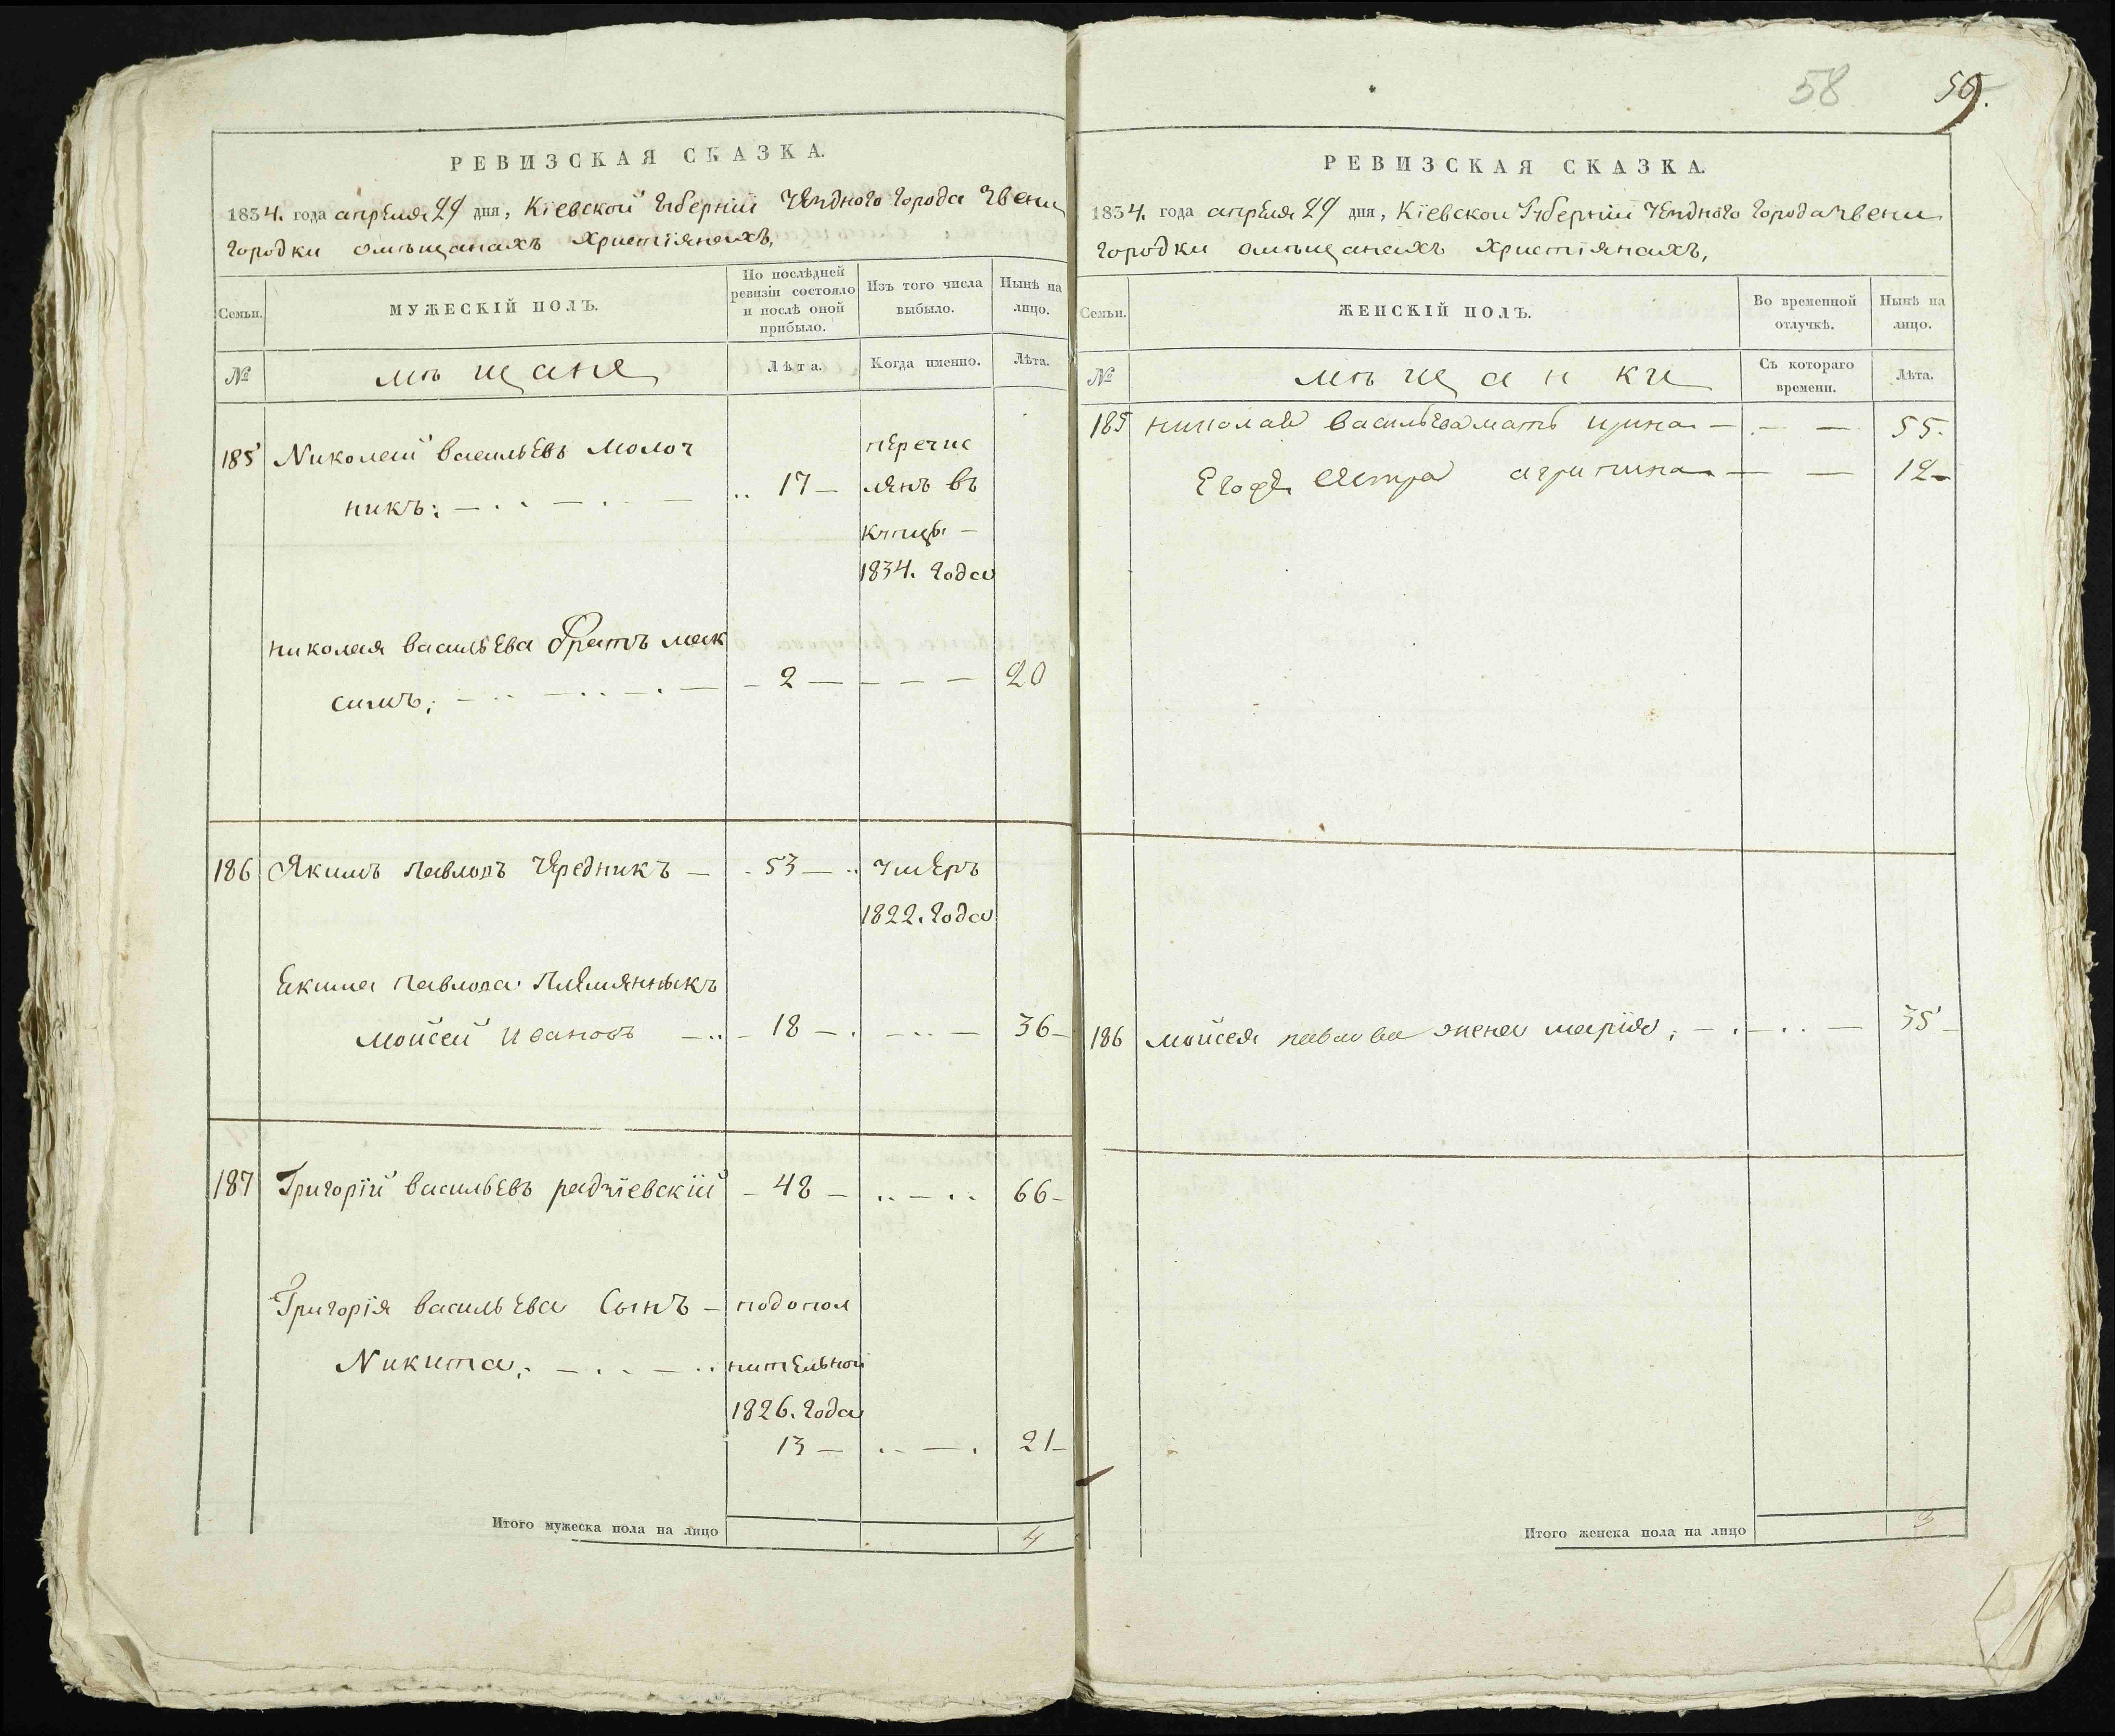 РЕВИЗСКАЯ СКАЗКА.
1834. года апреля 29 дня, Кіевской Губерніи уезднаго города Звени
городки омѣщанахъ христіянахъ,
Семьи.
МУЖЕСКІЙ ПОЛЪ.
По послѣдней ревизіи состояло и послѣ оной прибыло.
Изъ того числа выбыло.
Нынѣ на лицо.
№
мѣщане
Лѣта.
Когда именно.
Лѣта.
185 Николай васильевъ Молоч
никъ: 17
перечис
лянъ въ
купцы
1834. года
николая васильева братъ мак
симъ; 2 20
186 Якимъ павловъ Чередникъ 53 умеръ
1822. года
Екима павлова племянныкъ
мойсей ивановъ 18 36
187 Григорій васильевъ радзіевскій 48 66
Григорія васильева Сынъ подопол
Никита; нительной
1826. года
13 21
Итого мужеска пола на лицо 4
58 59.
РЕВИЗСКАЯ СКАЗКА.
1834. года апреля 29 дня, Кіевской Губерніи уезднаго города звени
городки омѣщанахъ христіянахъ,
Семьи.
ЖЕНСКІЙ ПОЛЪ.
Во временной отлучкѣ.
Нынѣ на лицо.
№
мѣщанки
Съ котораго времени.
Лѣта.
185 николая васильева мать ирина 55.
его же сестра агрипина 12
186 мойсея павлова жена марія; 35
Итого женска пола на лицо 3